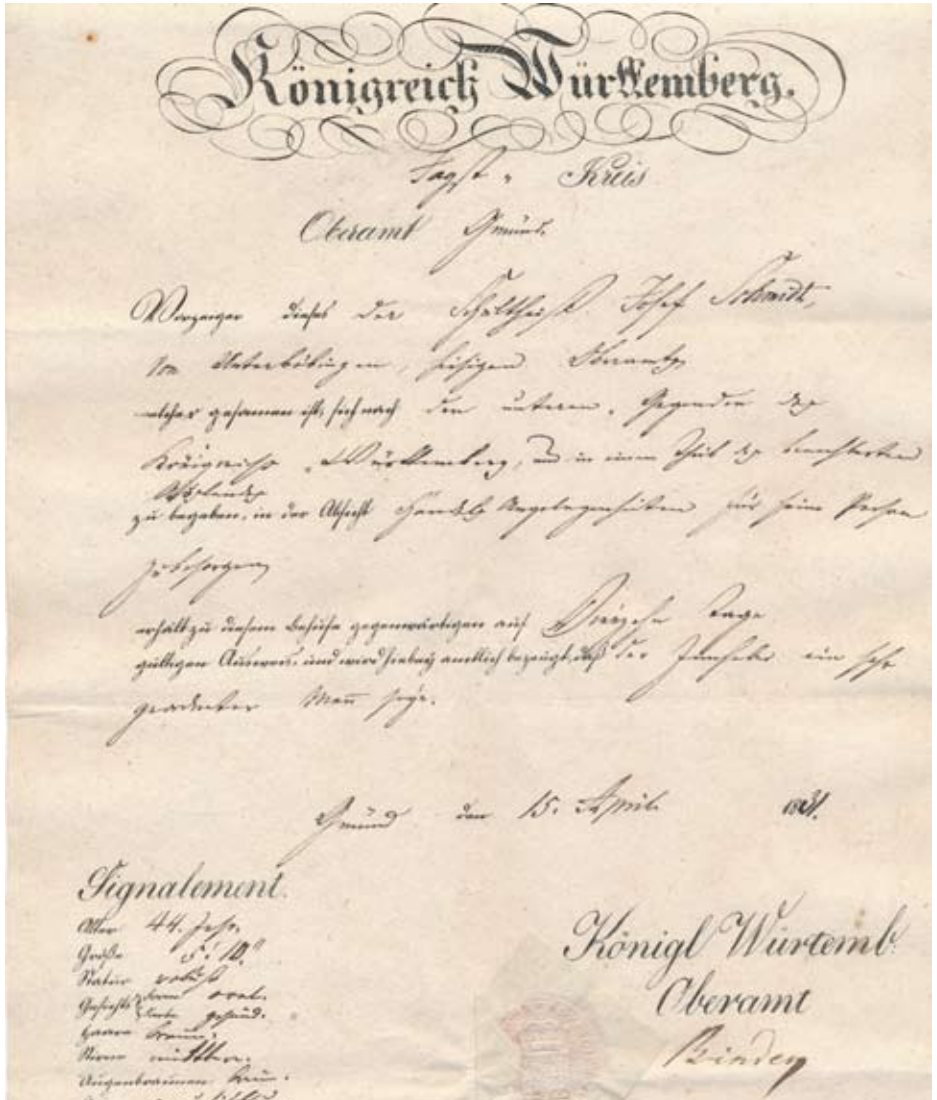 Königreich Württemberg.
Jagst - Kreis
Oberamt Gmünd.
Vorzeiger dieses der Schultheiß Josef Schmidt,
von Unterböbingen, hiesigen Oberamts,
welcher gesonnen ist, sich nach den unteren Gegenden des
Königreichs Württemberg, und in einen Theil des benachbarten
Auslandes
zu begeben, in der Absicht Handels Angelegenheiten für seine Person
zu besorgen
erhält zu diesem Behufe gegenwärtigen auf Vierzehn Tage
gültigen Ausweis, und wird hiebey amtlich bezeugt, daß der Innhaber ein sehr
geachteter Mann seye.
Gmünd den 15. April 1831.
Signalement.
Alter 44. Jahr.
Größe 5' 10"
Statur robust
Gesichts form oval.
farbe gesund.
Haare braun.
Stirne mittlere.
Augenbraunen braun.
Königl Würtemb.
Oberamt
Binder